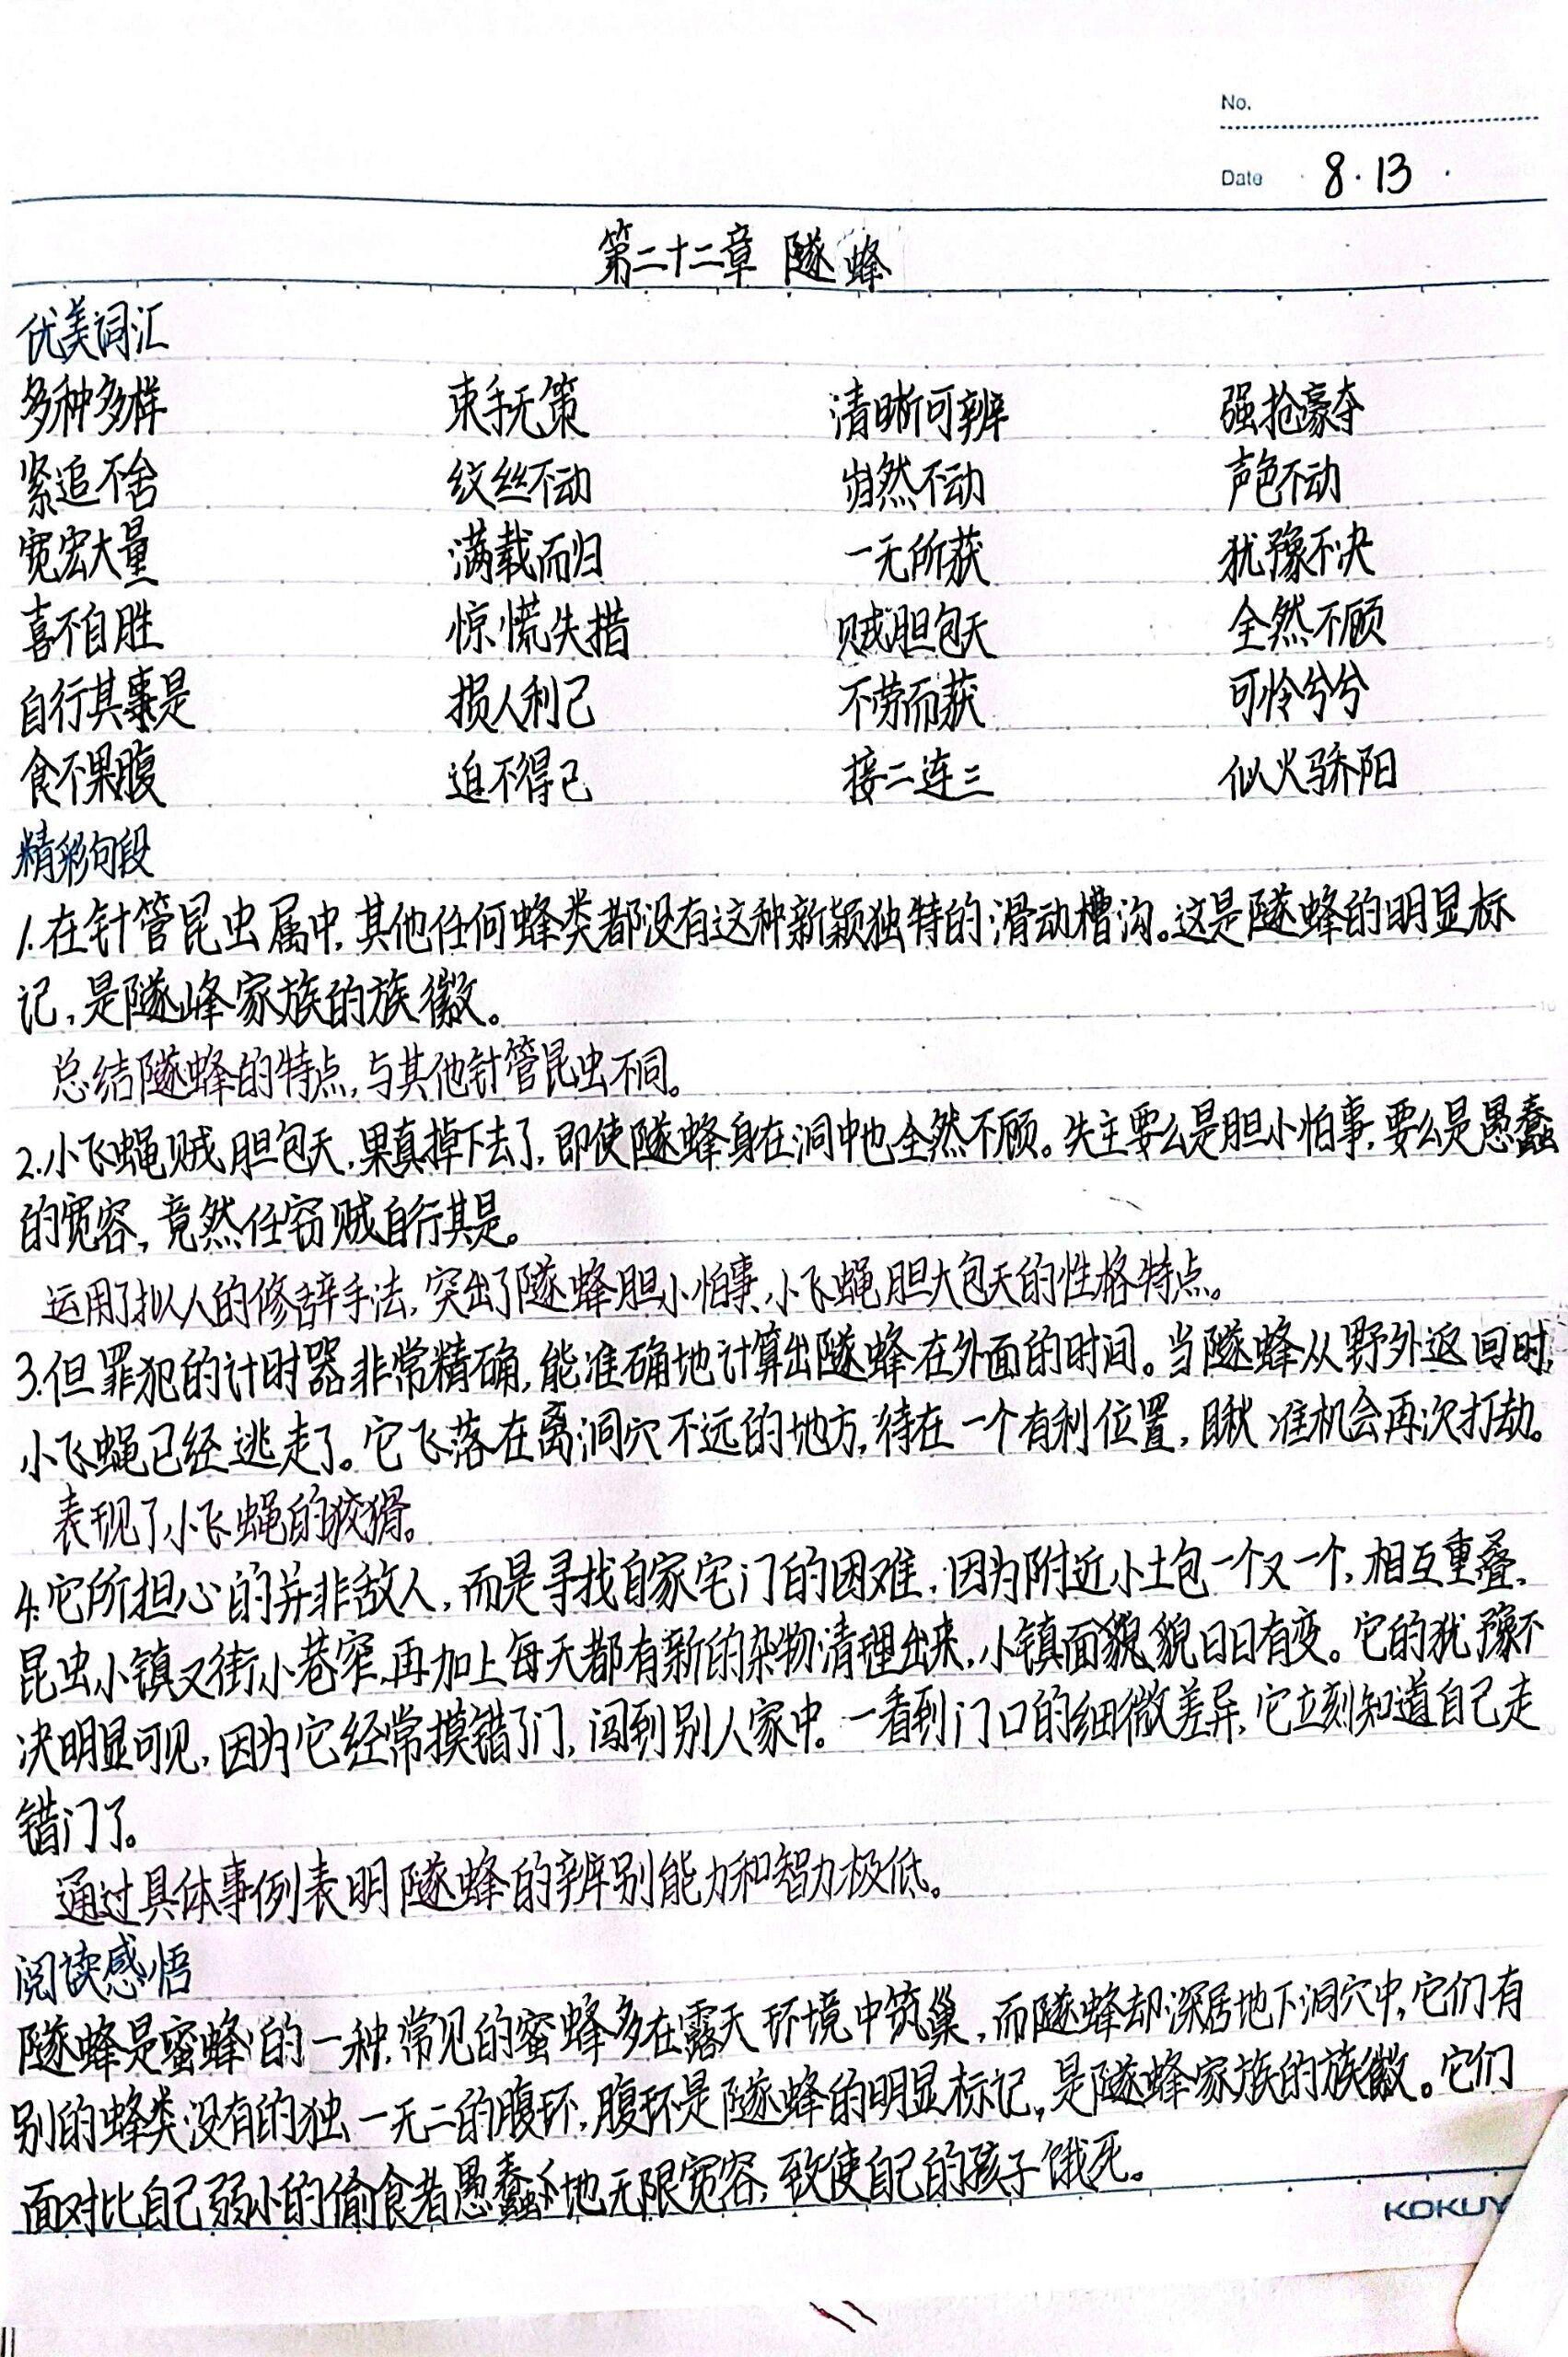 No.
Date 8·13
第二十二章 隧蜂
优美词汇
多种多样 束手无策 清晰可辨 强抢豪夺
紧追不舍 纹丝不动 岿然不动 声色不动
宽宏大量 满载而归 一无所获 犹豫不决
喜不自胜 惊慌失措 贼胆包天 全然不顾
自行其事是 损人利己 不劳而获 可怜兮兮
食不果腹 迫不得已 接二连三 似火骄阳
精彩句段
1.在针管昆虫属中,其他任何蜂类都没有这种新颖独特的滑动槽沟。这是隧蜂的明显标
记,是隧峰家族的族徽。
总结隧蜂的特点,与其他针管昆虫不同。
2.小飞蝇贼胆包天,果真掉下去了,即使隧蜂身在洞中也全然不顾。失主要么是胆小怕事,要么是愚蠢
的宽容,竟然任窃贼自行其是。
运用了拟人的修辞手法,突出了隧蜂胆小怕事、小飞蝇胆大包天的性格特点。
3.但罪犯的计时器非常精确,能准确地计算出隧蜂在外面的时间。当隧蜂从野外返回时,
小飞蝇已经逃走了。它飞落在离洞穴不远的地方,待在一个有利位置,瞅准机会再次打劫。
表现了小飞蝇的狡猾。
4.它所担心的并非敌人,而是寻找自家宅门的困难,因为附近小土包一个又一个,相互重叠,
昆虫小镇又街小巷窄,再加上每天都有新的杂物清理出来,小镇面貌貌日日有变。它的犹豫不
决明显可见,因为它经常摸错了门,闯到别人家中。一看到门口的细微差异,它立刻知道自己走
错门了。
通过具体事例表明隧蜂的辨别能力和智力极低。
阅读感悟
隧蜂是蜜蜂的一种,常见的蜜蜂多在露天环境中筑巢,而隧蜂却深居地下洞穴中,它们有
别的蜂类没有的独一无二的腹环,腹环是隧蜂的明显标记,是隧蜂家族的族徽。它们
面对比自己弱小的偷食者愚蠢地无限宽容,致使自己的孩子饿死。
KOKUY